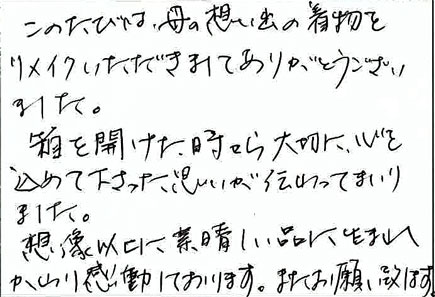 このたびは、母の想い出の着物を
リメイクいただきましてありがとうござい
ました。
箱を開けた時から大切に、心を
込めて下さった思いが伝わってまいり
ました。
想像以上に素晴しい品に生まれ
かわり感動しております。またお願い致します。